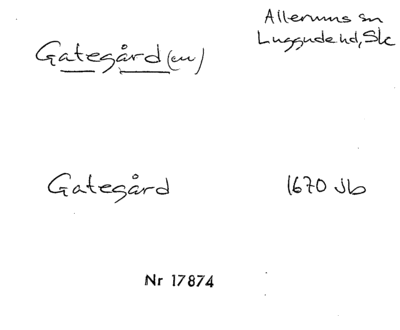 Gategård(en)
Allerums sn
Luggude hd, Sk
Gategård
1670 Jb
Nr 17874